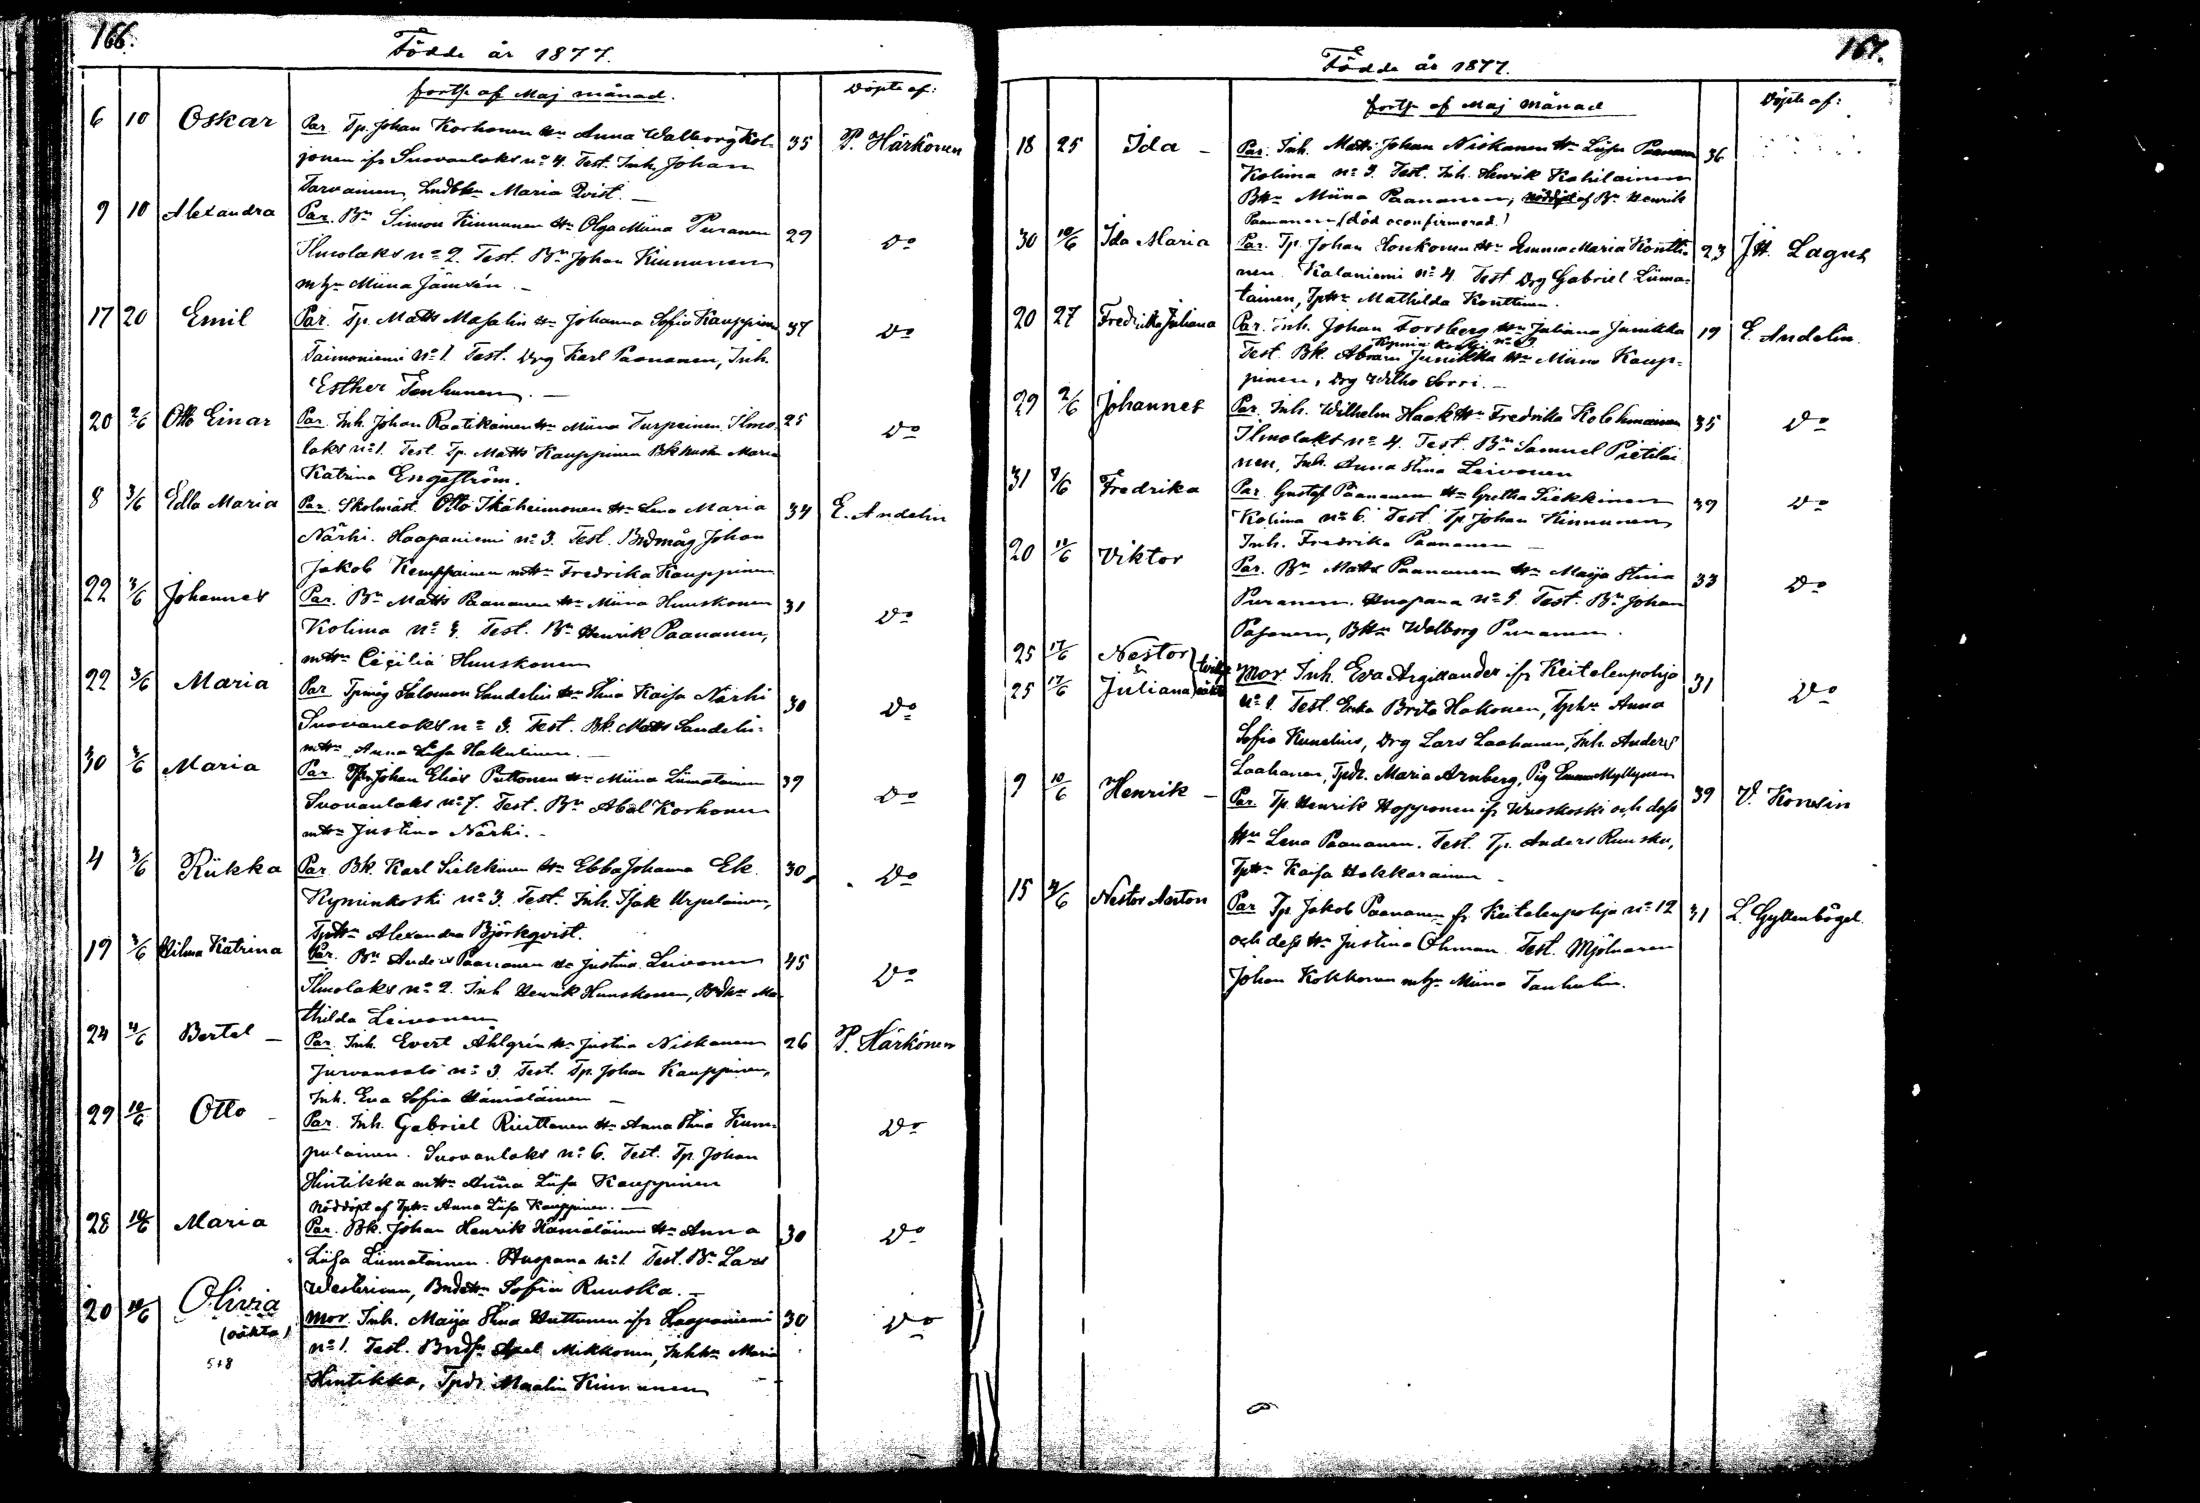 166.
Födde år 1877.
forts. af Maj månad.
Döpte af:
6 10 Oskar Par. Tp. Johan Korhonen Hu Anna Walborg Kol- 35 P. Härkönen
jonen ifr Suovanlaks no 4. Test. Inh. Johan
Tarvainen, Maria Qvist.
9 10 Alexandra Par. Bn Simon Kinnunen Hu Olga Miina Puranen 29 Do
Ilmolaks no 2. Test. Bn Johan Kinnunen
Miina Jämsén
17 20 Emil Par. Tp. Matts Masalin Hu Johanna Sofia Kauppinen 37 Do
Taimoniemi no 1. Test. Drg Karl Paananen, Inh.
Esther Tenhunen.
20 2/6 Otto Einar Par. Inh. Johan Raatikainen Hu Miina Turpeinen, Ilmo- 25 Do
laks no 1. Test. Tp. Matts Kauppinen Maria
Katrina Engeström.
8 3/6 Edla Maria Par. Skolmäst. Otto Ikäheimonen Hu Lena Maria 34 E. Andelin
Närhi. Haapaniemi no 3. Test. Bndmåg Johan
Jakob Kemppainen mHu Fredrika Kauppinen
22 3/6 Johannes Par. Bn Matts Paananen Hu Miina Huuskonen 31 Do
Kolima no 3. Test. Bn Henrik Paananen,
mHu Cecilia Huuskonen
22 3/6 Maria Par. Tpmåg Salomon Sandelin Hu Stina Kaisa Närhi 30 Do
Suovanlaks no 3. Test. Bk. Matts Sandelin
mHu Anna Lisa Hakulinen.
30 3/6 Maria Par. Johan Elias Puttonen Hu Miina Liimatainen 39 Do
Suovanlaks no 7. Test. Bn Abel Korhonen
mHu Justina Närhi.
4 3/6 Riikka Par. Bk. Karl Siekkinen Hu Ebba Johanna Ek. 30 Do
Kyminkoski no 3. Test. Inh. Isak Urpelainen,
Alexandra Björkqvist.
19 3/6 Hilma Katrina Par. Bn Anders Paananen Hu Justina Leivonen 45 Do
Ilmolaks no 2. Inh Henrik Huuskonen, Ma-
thilda Leivonen
24 4/6 Bertel Par. Inh. Evert Åhlgrén Hu Justina Niskanen 26 P. Härkönen
Jurvansalo no 3. Test. Tp. Johan Kauppinen,
Inh. Eva Sofia Hämäläinen
29 10/6 Otto Par. Inh. Gabriel Riuttanen Hu Anna Stina Kum- Do
pulainen. Suovanlaks no 6. Test. Tp. Johan
Hintikka mHu Anna Liisa Kauppinen
Nöddöpt af TpHu Anna Liisa Kauppinen.
28 10/6 Maria Par. Bk. Johan Henrik Hämäläinen Hu Anna 30 Do
Liisa Liimatainen. Huopana no 1. Test. Bn Lars
Westerinen, Sofia Ruuska.
20 10/6 Olivia Mor. Inh. Maija Stina Huttunen ifr Haapaniemi 30 Do
(oäkta) no 1. Test. Axel Mikkonen, Maria
Hintikka, Tpdr Maalin Kinnunen
167.
Födde år 1877.
forts. af Maj månad
Döpte af:
18 25 Ida Par. Inh. Matts Johan Niskanen Hu Liisa Paananen 36
Kolima no 3. Test. Inh. Henrik Kahilainen
Miina Paananen, nöddöpt af Bn Henrik
Paananen (död oconfirmerad)
30 10/6 Ida Maria Par. Tp. Johan Honkonen Hu Emma Maria Kontti- 23 J. H. Lagus
nen. Kalaniemi no 4. Test Drg Gabriel Liima-
tainen, TpHu Mathilda Konttinen.
20 27 Fredrika Juliana Par. Inh. Johan Forsberg Hu Juliana Junikka 19 E. Andelin.
Test. Bk. Abram Junikka Hu Miina Kaup-
pinen, Drg Wilho Sorri.
29 2/6 Johannes Par. Inh. Wilhelm Haak Hu Fredrika Kolehmainen 35 Do
Ilmolaks no 4. Test. Bn Samuel Pietiläi-
nen, Inh. Anna Stina Leivonen
31 Fredrika Par. Gustaf Paananen Hu Gretha Siekkinen 39 Do
Kolima no 6. Test. Tp. Johan Kinnunen
Inh. Fredrika Paananen
20 Viktor Par. Bn Matts Paananen Hu Maija Stina 33 Do
Puranen. Huopana no 5. Test. Bn Johan
Pasanen, Walborg Puranen.
25 17/6 Nestor
& 
25 17/6 Juliana Mor. Inh. Eva Argillander ifr Keitelenpohja 31 Do
no 1. Test. Brita Hakonen, Anna
Sofia Kunelius, Drg Lars Laahanen, Inh. Anders
Laahanen, Tpdr. Maria Arnberg, Pig Emma Myllynen
9 10/6 Henrik Par. Tp. Henrik Hopponen ifr Wuoskoski och dess 39 V. Konsin
Hu Lena Paananen. Test. Tp. Anders Ruuska,
TpHu Kaisa Hakkarainen
15 Nestor Anton Par. Tp. Jakob Paananen fr. Keitelenpohja no 12 31 L. Gyllenbögel.
och dess Hu Justina Öhman. Test. Mjölnaren
Johan Kokkonen Miina Tauhulin.